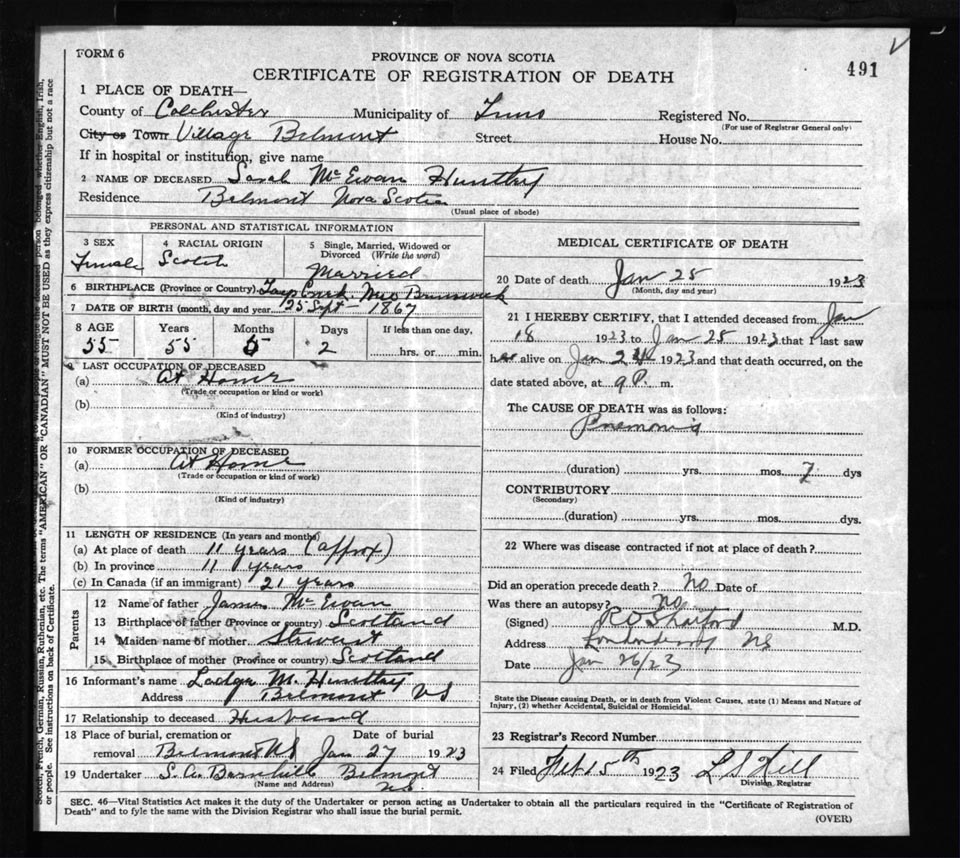 FORM 6
PROVINCE OF NOVA SCOTIA
CERTIFICATE OF REGISTRATION OF DEATH
491
1 PLACE OF DEATH—
County of Colchester Municipality of Truro Registered No.
(For use of Registrar General only)
City or Town Village Belmont Street House No.
If in hospital or institution, give name
2 NAME OF DECEASED Sarah McEwan Huntley
Residence Belmont Nova Scotia
(Usual place of abode)
PERSONAL AND STATISTICAL INFORMATION
3 SEX 4 RACIAL ORIGIN 5 Single, Married, Widowed or Divorced (Write the word)
Female Scotch Married
6 BIRTHPLACE (Province or Country) New Brunswick
7 DATE OF BIRTH (month, day and year) 25 Sept - 1867
8 AGE Years Months Days If less than one day,
55 55 2 hrs. or min.
9 LAST OCCUPATION OF DECEASED
(a) At Home
(Trade or occupation or kind or work)
(b)
(Kind of industry)
10 FORMER OCCUPATION OF DECEASED
(a) At Home
(Trade or occupation or kind of work)
(b)
(Kind of industry)
11 LENGTH OF RESIDENCE (In years and months)
(a) At place of death 11 years (approx)
(b) In province 11 years
(c) In Canada (if an immigrant) 21 years
Parents
12 Name of father James McEwan
13 Birthplace of father (Province or country) Scotland
14 Maiden name of mother Stewart
15 Birthplace of mother (Province or country) Scotland
16 Informant's name M. Huntley
Address Belmont NS
17 Relationship to deceased Husband
18 Place of burial, cremation or removal Date of burial
Belmont NS Jan 27 1923
19 Undertaker S. A. Barnhill Belmont
(Name and Address) N.S.
MEDICAL CERTIFICATE OF DEATH
20 Date of death Jan 25 1923
(Month, day and year)
21 I HEREBY CERTIFY, that I attended deceased from Jan
18 1923 to Jan 25 1923 that I last saw
her alive on Jan 24 1923 and that death occurred, on the
date stated above, at 9 P. m.
The CAUSE OF DEATH was as follows:
Pnemonia
(duration) yrs. mos. 7 dys
CONTRIBUTORY
(Secondary)
(duration) yrs. mos. dys.
22 Where was disease contracted if not at place of death?
Did an operation precede death? no Date of
Was there an autopsy? no
(Signed) M.D.
Address Londonderry NS
Date Jan 26/23
State the Disease causing Death, or in death from Violent Causes, state (1) Means and Nature of
Injury, (2) whether Accidental, Suicidal or Homicidal.
23 Registrar's Record Number
24 Filed Feb 15th 1923 L S Hill
Division Registrar
SEC. 46—Vital Statistics Act makes it the duty of the Undertaker or person acting as Undertaker to obtain all the particulars required in the "Certificate of Registration of
Death" and to fyle the same with the Division Registrar who shall issue the burial permit.
(OVER)
Scotch, French, German, Russian, Ruthenian, etc. The terms "AMERICAN" or "CANADIAN" MUST NOT BE USED as they express citizenship but not a race
or people. See instructions on back of Certificate.